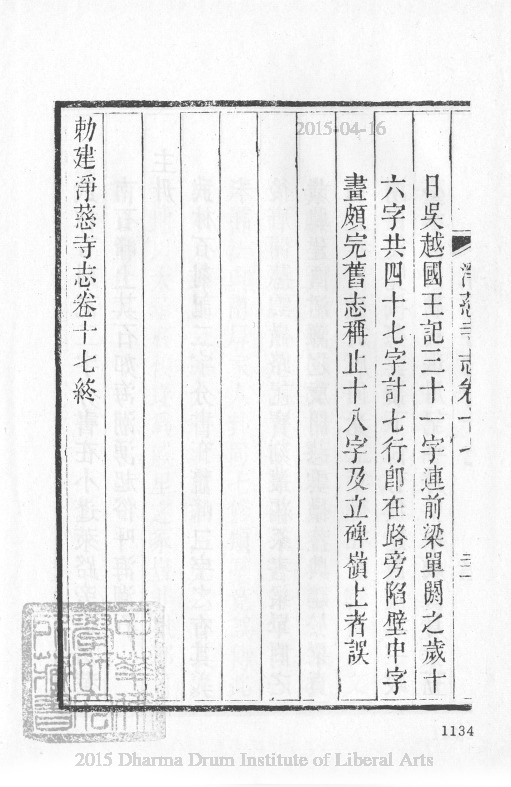 2015-04-16
淨慈寺志卷十七
日吳越國王記三十一字連前梁單閼之歲十
六字共四十七字計七行即在路旁陷壁中字
畫頗完舊志稱止十八字及立碑嶺上者誤
勅建淨慈寺志卷十七終
1134
2015 Dharma Drum Institute of Liberal Arts